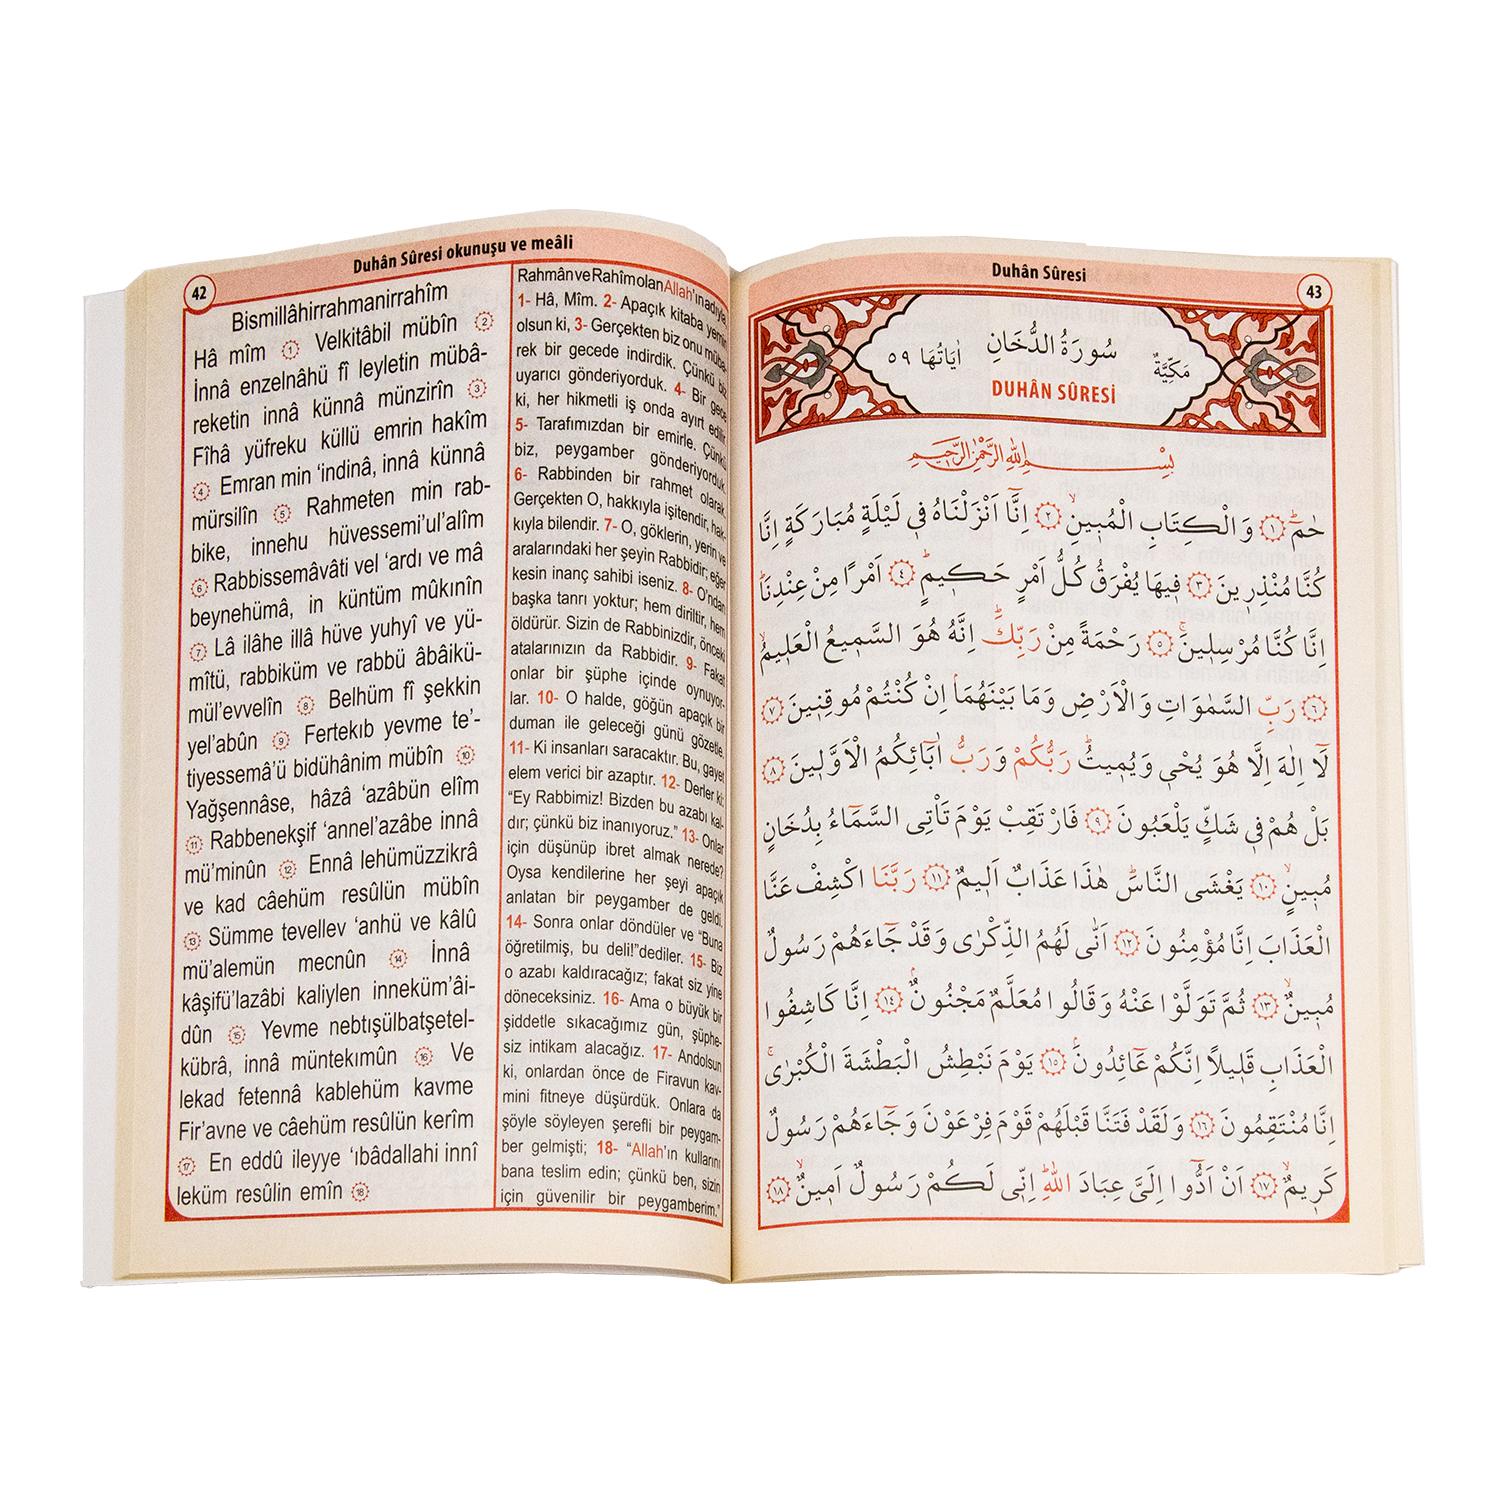 42
Duhân Sûresi okunuşu ve meâli
Bismillâhirrahmanirrahîm
Hâ mîm 1 Velkitâbil mübîn 2
İnnâ enzelnâhü fî leyletin mübâ-
reketin innâ künnâ münzirîn 3
Fîhâ yüfreku küllü emrin hakîm
4 Emran min ‘indinâ, innâ künnâ
mürsilîn 5 Rahmeten min rab-
bike, innehu hüvessemi’ul’alîm
6 Rabbissemâvâti vel ‘ardı ve mâ
beynehümâ, in küntüm mûkınîn
7 Lâ ilâhe illâ hüve yuhyî ve yü-
mîtü, rabbiküm ve rabbü âbâikü-
mül’evvelîn 8 Belhüm fî şekkin
yel’abûn 9 Fertekıb yevme te’-
tiyessemâ’ü bidühânim mübîn 10
Yağşennâse, hâzâ ‘azâbün elîm
11 Rabbenekşif ‘annel’azâbe innâ
mü’minûn 12 Ennâ lehümüzzikrâ
ve kad câehüm resûlün mübîn
13 Sümme tevellev ‘anhü ve kâlû
mü’alemün mecnûn 14 İnnâ
kâşifü’lazâbi kaliylen inneküm’âi-
dûn 15 Yevme nebtışülbatşetel-
kübrâ, innâ müntekımûn 16 Ve
lekad fetennâ kablehüm kavme
Fir’avne ve câehüm resûlün kerîm
17 En eddû ileyye ‘ıbâdallahi innî
leküm resûlin emîn 18
Rahmân ve Rahîm olan Allah’ın adıyla,
1- Hâ, Mîm. 2- Apaçık kitaba yemin
olsun ki, 3- Gerçekten biz onu müba-
rek bir gecede indirdik. Çünkü biz
uyarıcı gönderiyorduk. 4- Bir gece
ki, her hikmetli iş onda ayırt edilir.
5- Tarafımızdan bir emirle. Çünkü
biz, peygamber gönderiyorduk.
6- Rabbinden bir rahmet olarak.
Gerçekten O, hakkıyla işitendir, hak-
kıyla bilendir. 7- O, göklerin, yerin ve
aralarındaki her şeyin Rabbidir; eğer
kesin inanç sahibi iseniz. 8- O’ndan
başka tanrı yoktur; hem diriltir, hem
öldürür. Sizin de Rabbinizdir, önceki
atalarınızın da Rabbidir. 9- Fakat
onlar bir şüphe içinde oynuyor-
lar. 10- O halde, göğün apaçık bir
duman ile geleceği günü gözetle.
11- Ki insanları saracaktır. Bu, gayet
elem verici bir azaptır. 12- Derler ki:
“Ey Rabbimiz! Bizden bu azabı kal-
dır; çünkü biz inanıyoruz.” 13- Onlar
için düşünüp ibret almak nerede?
Oysa kendilerine her şeyi apaçık
anlatan bir peygamber de geldi.
14- Sonra onlar döndüler ve “Buna
öğretilmiş, bu deli!”dediler. 15- Biz
o azabı kaldıracağız; fakat siz yine
döneceksiniz. 16- Ama o büyük bir
şiddetle sıkacağımız gün, şüphe-
siz intikam alacağız. 17- Andolsun
ki, onlardan önce de Firavun kav-
mini fitneye düşürdük. Onlara da
şöyle söyleyen şerefli bir peygam-
ber gelmişti; 18- “Allah’ın kullarını
bana teslim edin; çünkü ben, sizin
için güvenilir bir peygamberim.”
Duhân Sûresi
43
مَكِّيَّةٌ سُورَةُ الدُّخَانِ اٰيَاتُهَا ٥٩
DUHÂN SÛRESİ
بِسْمِ اللّٰهِ الرَّحْمٰنِ الرَّحٖيمِ
حٰمٓ ١ وَالْكِتَابِ الْمُبٖينِ ٢ اِنَّٓا اَنْزَلْنَاهُ فٖي لَيْلَةٍ مُبَارَكَةٍ اِنَّا
كُنَّا مُنْذِرٖينَ ٣ فٖيهَا يُفْرَقُ كُلُّ اَمْرٍ حَكٖيمٍ ٤ اَمْرًا مِنْ عِنْدِنَا
اِنَّا كُنَّا مُرْسِلٖينَ ٥ رَحْمَةً مِنْ رَبِّكَ اِنَّهُ هُوَ السَّمٖيعُ الْعَلٖيمُ
٦ رَبِّ السَّمٰوَاتِ وَالْاَرْضِ وَمَا بَيْنَهُمَا اِنْ كُنْتُمْ مُوقِنٖينَ ٧
لَٓا اِلٰهَ اِلَّا هُوَ يُحْيٖ وَيُمٖيتُ رَبُّكُمْ وَرَبُّ اٰبَٓائِكُمُ الْاَوَّلٖينَ ٨
بَلْ هُمْ فٖي شَكٍّ يَلْعَبُونَ ٩ فَارْتَقِبْ يَوْمَ تَأْتِى السَّمَٓاءُ بِدُخَانٍ
مُبٖينٍ ١٠ يَغْشَى النَّاسَ هٰذَا عَذَابٌ اَلٖيمٌ ١١ رَبَّنَا اكْشِفْ عَنَّا
الْعَذَابَ اِنَّا مُؤْمِنُونَ ١٢ اَنّٰى لَهُمُ الذِّكْرٰى وَقَدْ جَٓاءَهُمْ رَسُولٌ
مُبٖينٌ ١٣ ثُمَّ تَوَلَّوْا عَنْهُ وَقَالُوا مُعَلَّمٌ مَجْنُونٌ ١٤ اِنَّا كَاشِفُوا
الْعَذَابِ قَلٖيلًا اِنَّكُمْ عَٓائِدُونَ ١٥ يَوْمَ نَبْطِشُ الْبَطْشَةَ الْكُبْرٰى
اِنَّا مُنْتَقِمُونَ ١٦ وَلَقَدْ فَتَنَّا قَبْلَهُمْ قَوْمَ فِرْعَوْنَ وَجَٓاءَهُمْ رَسُولٌ
كَرٖيمٌ ١٧ اَنْ اَدُّٓوا اِلَىَّ عِبَادَ اللّٰهِ اِنّٖي لَكُمْ رَسُولٌ اَمٖينٌ ١٨